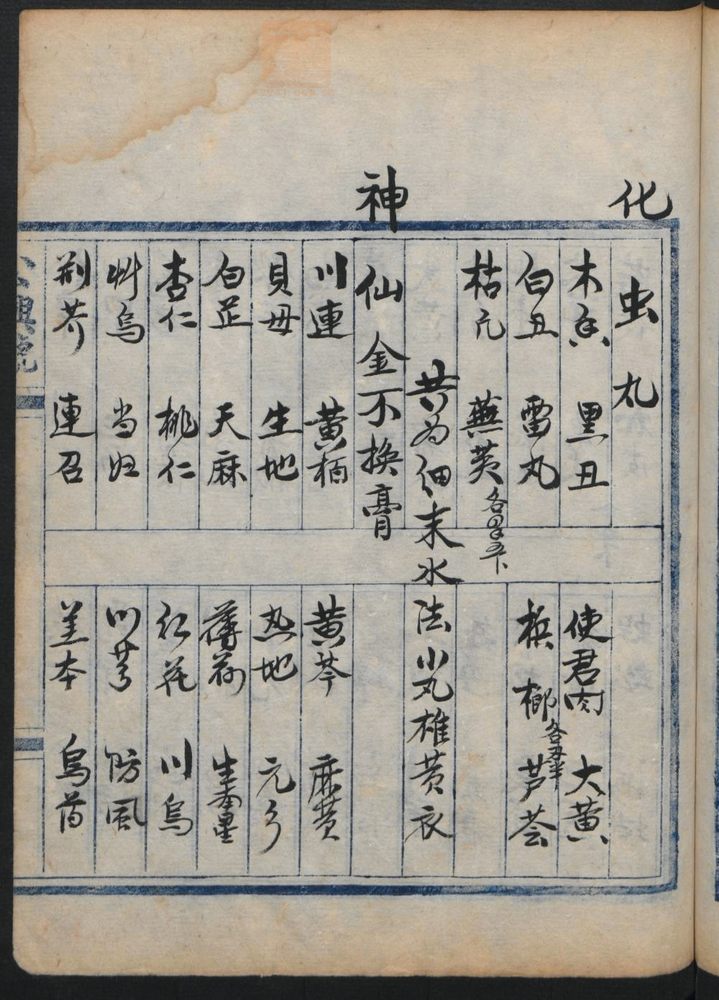 化虫丸
木香 黑丑 使君肉 大黄
白丑 雷丸 槟榔 芦荟
枯凡 蕪荑
共为细末水法小丸雄黄衣
神仙金不换膏
川連 黄栢 黄芩 麻黄
貝母 生地 熟地 元参
白芷 天麻 薄荷
杏仁 桃仁 红花 川乌
艸乌 当归 川芎 防風
荆芥 連召 羔本 烏药